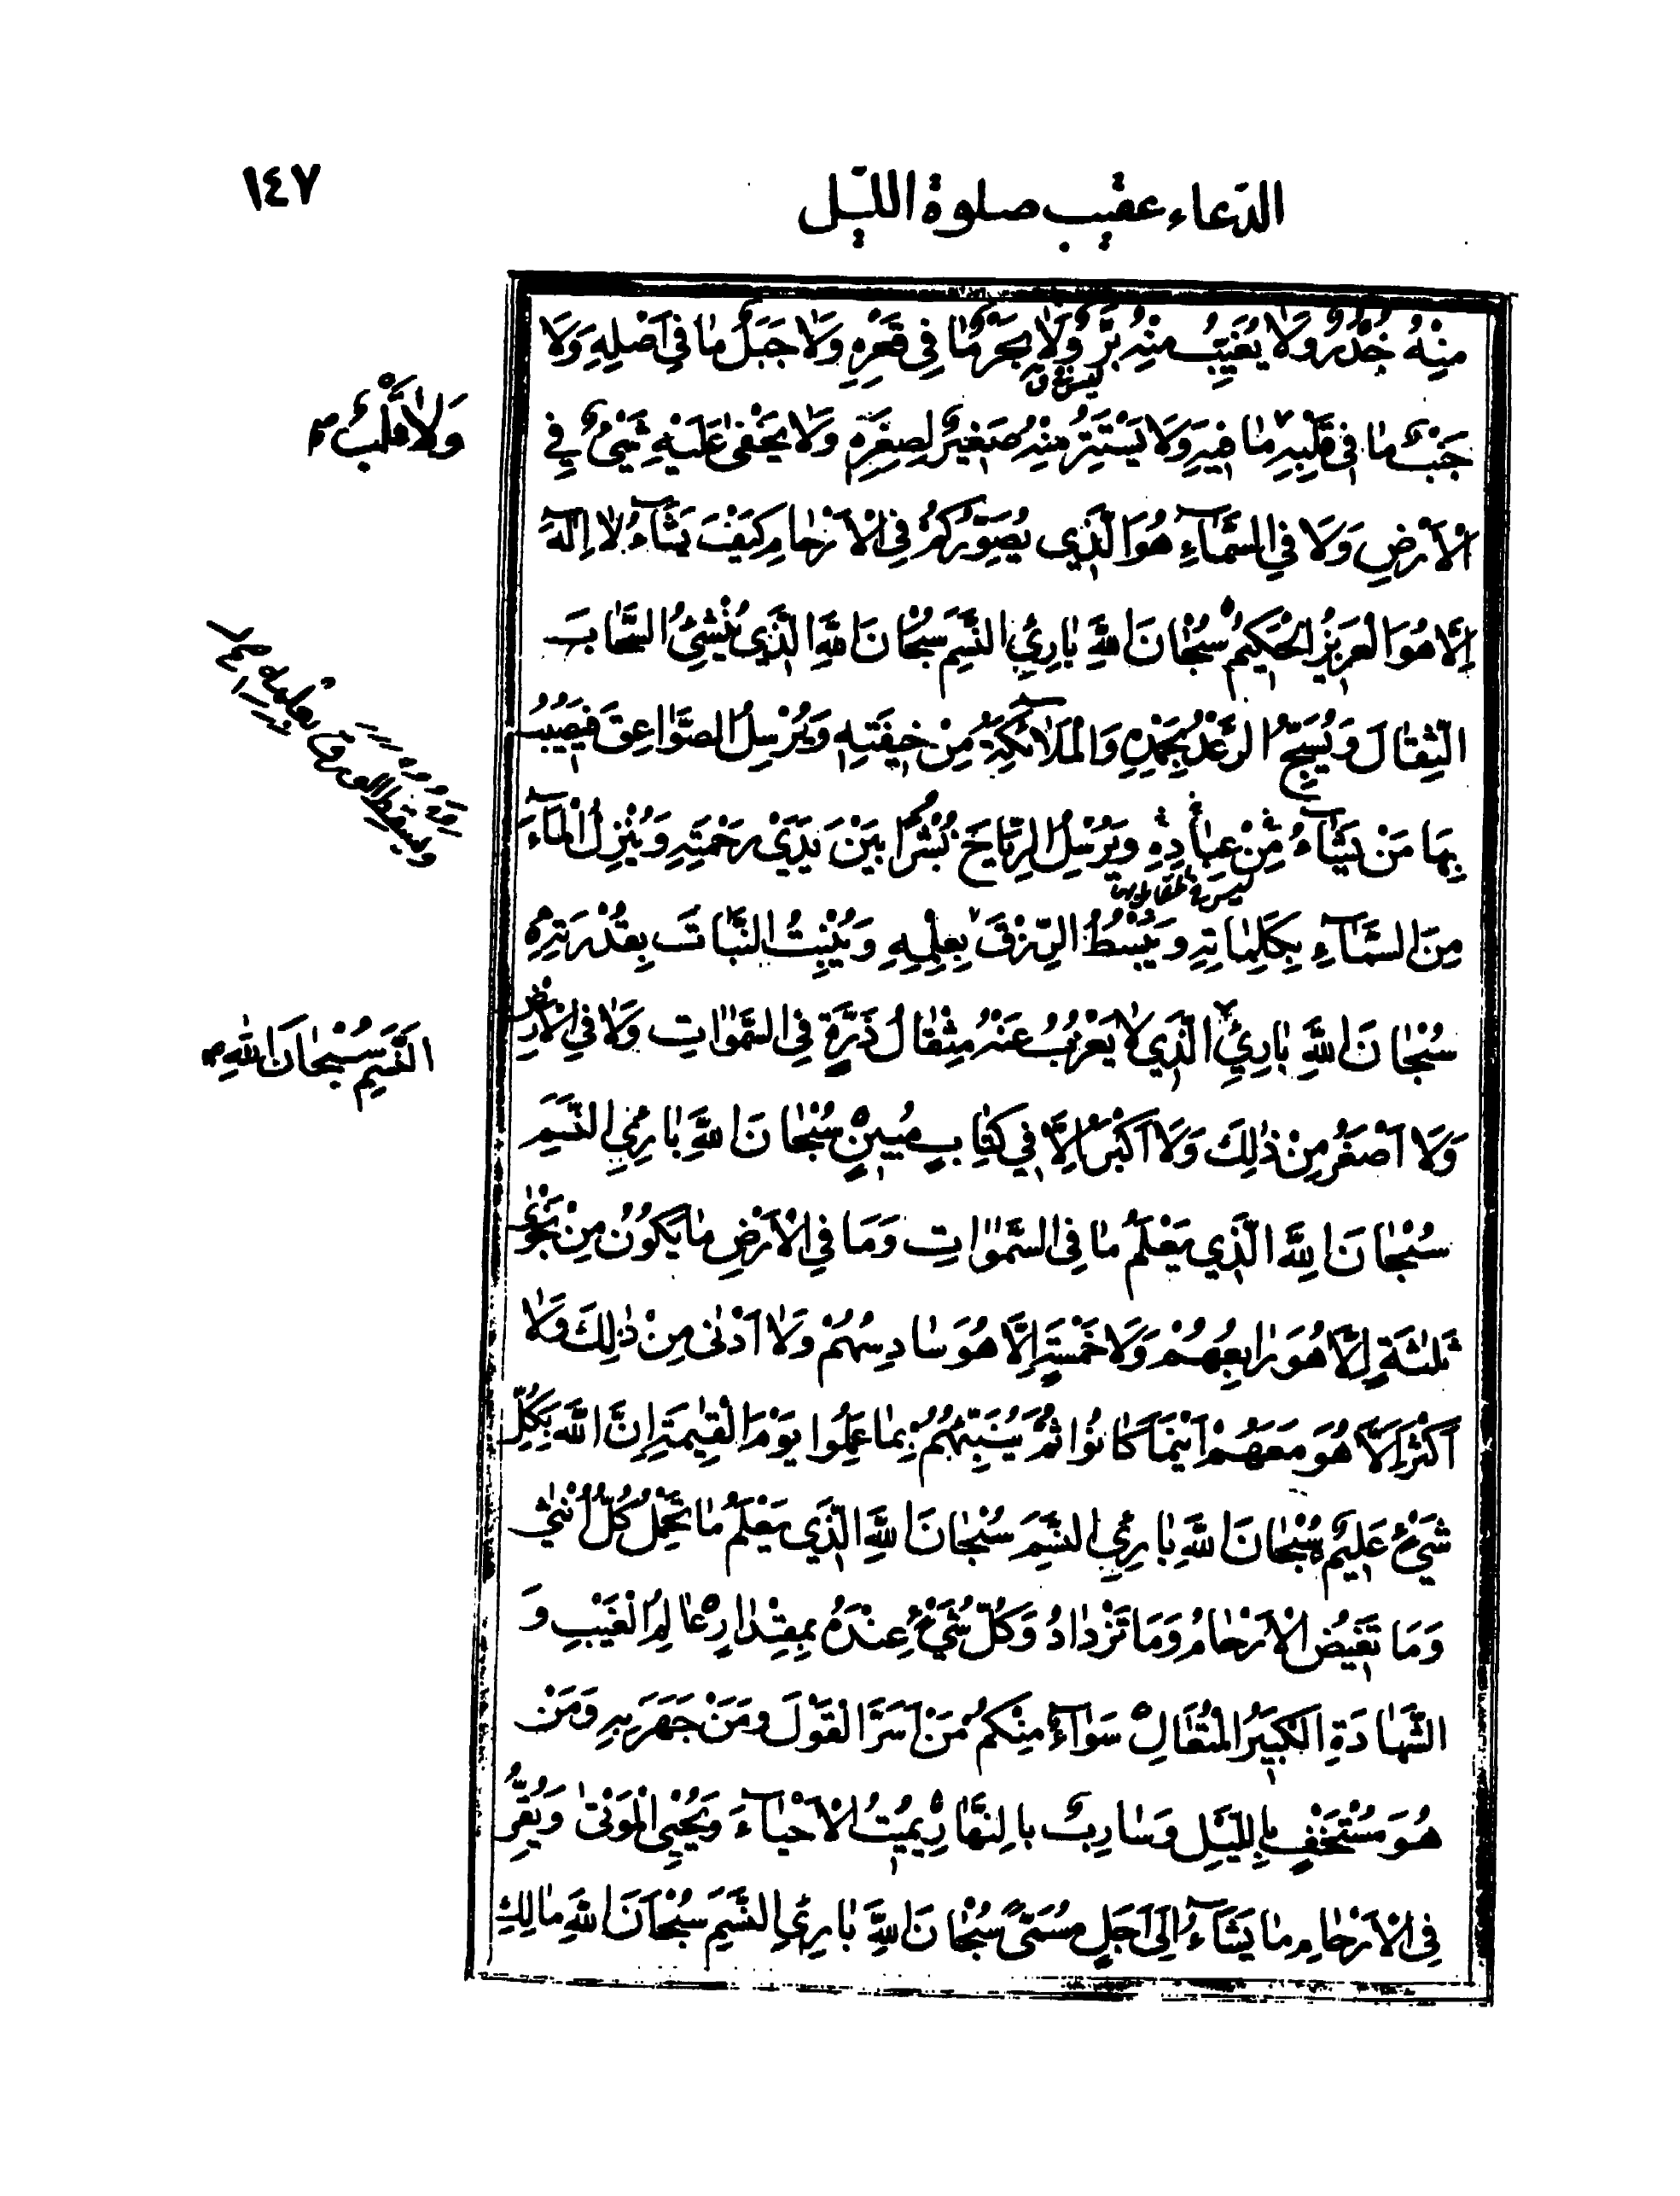 الدّعاء عقيب صلوة اللّيل
١٤٧
مِنْهُ جُدُرٌ وَلَا يُغَيِّبُ مِنْهُ بَرٌّ وَلَا بَحْرٌ مَا فِي قَعْرِهِ وَلَا جَبَلٌ مَا فِي اَصْلِهِ وَلَا
جَنْبٌ مَا فِي قَلْبِهِ مَا فِيهِ وَلَا يَسْتَتِرُ مِنْهُ صَغِيرٌ لِصِغَرِهِ وَلَا يَخْفىٰ عَلَيْهِ شَيْءٌ فِي
وَلَا قَلْبٌ
الْاَرْضِ وَلَا فِي السَّمَاءِ هُوَ الَّذِي يُصَوِّرُكُمْ فِي الْاَرْحَامِ كَيْفَ يَشَاءُ لَا اِلٰهَ
اِلَّا هُوَ الْعَزِيزُ الْحَكِيمُ سُبْحَانَ اللّٰهِ بَارِئِ النَّسَمِ سُبْحَانَ اللّٰهِ الَّذِي يُنْشِئُ السَّحَابَ
الثِّقَالَ وَيُسَبِّحُ الرَّعْدُ بِحَمْدِهِ وَالْمَلَائِكَةُ مِنْ خِيفَتِهِ وَيُرْسِلُ الصَّوَاعِقَ فَيُصِيبُ
بِهَا مَنْ يَشَاءُ مِنْ عِبَادِهِ وَيُرْسِلُ الرِّيَاحَ بُشْرًا بَيْنَ يَدَيْ رَحْمَتِهِ وَيُنْزِلُ الْمَاءَ
وَيَسْقُطُ الْوَرَقُ بعلمه
مِنَ السَّمَاءِ بِكَلِمَاتِهِ وَيَبْسُطُ الرِّزْقَ بِعِلْمِهِ وَيُنْبِتُ النَّبَاتَ بِقُدْرَتِهِ
سُبْحَانَ اللّٰهِ بَارِئِ الَّذِي لَا يَعْزُبُ عَنْهُ مِثْقَالُ ذَرَّةٍ فِي السَّمٰوَاتِ وَلَا فِي الْاَرْضِ
النَّسَمِ سُبْحَانَ اللّٰهِ
وَلَا اَصْغَرُ مِنْ ذٰلِكَ وَلَا اَكْبَرُ اِلَّا فِي كِتَابٍ مُبِينٍ سُبْحَانَ اللّٰهِ بَارِئِ النَّسَمِ
سُبْحَانَ اللّٰهِ الَّذِي يَعْلَمُ مَا فِي السَّمٰوَاتِ وَمَا فِي الْاَرْضِ مَا يَكُونُ مِنْ نَجْوىٰ
ثَلٰثَةٍ اِلَّا هُوَ رَابِعُهُمْ وَلَا خَمْسَةٍ اِلَّا هُوَ سَادِسُهُمْ وَلَا اَدْنىٰ مِنْ ذٰلِكَ وَلَا
اَكْثَرَ اِلَّا هُوَ مَعَهُمْ اَيْنَمَا كَانُوا ثُمَّ يُنَبِّئُهُمْ بِمَا عَمِلُوا يَوْمَ الْقِيٰمَةِ اِنَّ اللّٰهَ بِكُلِّ
شَيْءٍ عَلِيمٌ سُبْحَانَ اللّٰهِ بَارِئِ النَّسَمِ سُبْحَانَ اللّٰهِ الَّذِي يَعْلَمُ مَا تَحْمِلُ كُلُّ اُنْثىٰ
وَمَا تَغِيضُ الْاَرْحَامُ وَمَا تَزْدَادُ وَكُلُّ شَيْءٍ عِنْدَهُ بِمِقْدَارٍ عَالِمُ الْغَيْبِ وَ
الشَّهَادَةِ الْكَبِيرُ الْمُتَعَالِ سَوَاءٌ مِنْكُمْ مَنْ اَسَرَّ الْقَوْلَ وَمَنْ جَهَرَ بِهِ وَمَنْ
هُوَ مُسْتَخْفٍ بِاللَّيْلِ وَسَارِبٌ بِالنَّهَارِ يُمِيتُ الْاَحْيَاءَ وَيُحْيِي الْمَوْتىٰ وَيُقِرُّ
فِي الْاَرْحَامِ مَا يَشَاءُ اِلَى اَجَلٍ مُسَمًّى سُبْحَانَ اللّٰهِ بَارِئِ النَّسَمِ سُبْحَانَ اللّٰهِ مَالِكِ